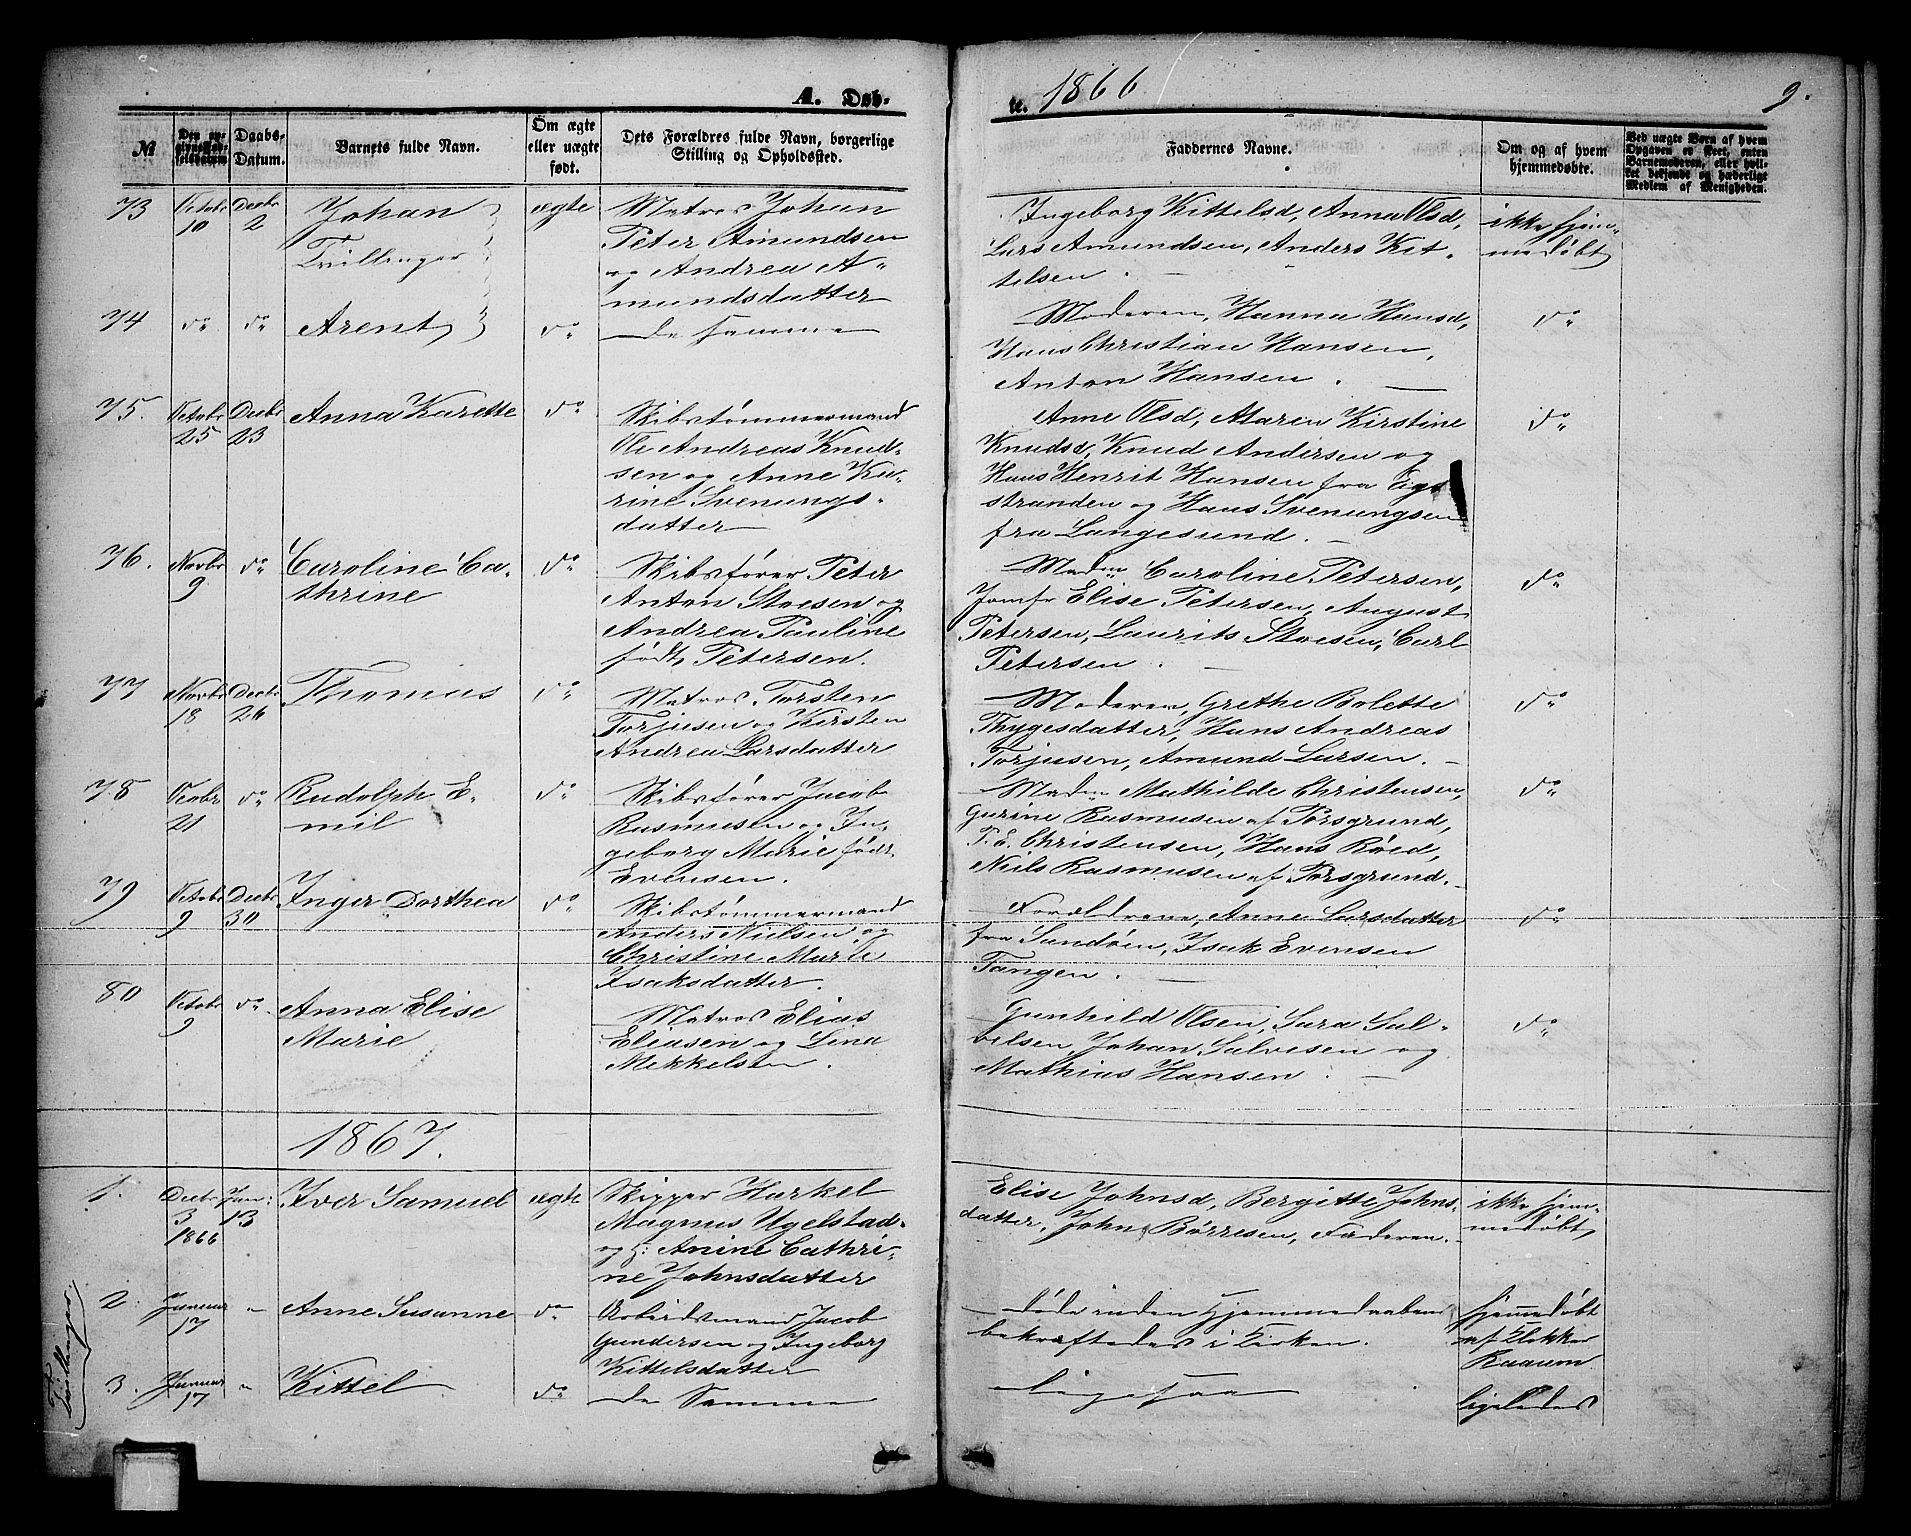 A. Døb-
te. 1866
9.
№
Den opgivne Fødselsdatum.
Daabs-Datum.
Barnets fulde Navn.
Om ægte eller uægte født.
Dets Forældres fulde Navn, borgerlige Stilling og Opholdssted.
Faddernes Navne.
Om og af hvem hjemmedøbte.
Ved uægte Børn af hvem Opgaven er skeet, enten Barnemoderen, eller hvilket bekjendt og hæderligt Medlem af Menigheden.
73 Octobr 10 Decbr 2 Johan ægte Matros Johan
Tvillinger Peter Amundsen
og Andrea A-
mundsdatter
Ingeborg Kittelsd, Anna Olsd, ikke hjem-
Lars Amundsen, Anders Kit- medøbt
telsen.
74 do do Arent do de samme
Moderen, Hanna Hansd, do
Hans Christian Hansen,
Anton Hansen.
75. Octobr 25 Decbr 23 Anna Karette do Skibstømmermand
Ole Andreas Knud-
sen og Anne Ka-
rine Svenungs-
datter
Anne Olsd, Maren Kirstine do
Knudsd, Knud Andersen og
Hans Henrik Hansen fra
stranden og Hans Svenungsen
fra Langesund.
76. Novbr 9 do Caroline Ca- do Skibsfører Peter
thrine Anton Stoesen og
Andrea Pauline
født Petersen.
Madm Caroline Petersen, do
Jomfr Elise Petersen, August
Petersen, Laurits Stoesen, Carl
Petersen.
77 Novbr 18 Decbr 26 Thomas do Matros Torsten
Torjusen og Kirsten
Andrea Larsdatter
Moderen, Grethe Bolette do
Thygesdatter, Hans Andreas
Torjusen, Amund Larsen.
78 21 do Rudolph E- do Skibsfører Jacob
mil Rasmusen og In-
geborg Marie født
Evensen.
Madm Mathilde Christensen, do
Gurine Rasmusen af Porsgrund,
T. E. Christensen, Hans Røed,
Niels Rasmusen af Porsgrund.
79 Octobr 9 Decbr 30 Inger Dorthea do Skibstømmermand
Anders Nielsen og
Christine Marie
Isaksdatter.
Forældrene, Anne Larsdatter do
fra Sandøen, Isak Evensen
Tangen.
80 Octobr 9 do Anna Elise Matros Elias
Marie Eliasen og Lina
Mekkelsen.
Gunhild Olsen, Sara Sal- do
vesen, Johan Salvesen og
Mathias Hansen.
1867.
1. Decbr 3 1866 Jan: 13 Iver Samuel ægte Skipper Harkel
Magnus Ugelstad
og H: Anine Cathri-
ne Johnsdatter
Elise Johnsd, Bergitte Johns- ikke hjem-
datter, John Børresen, Faderen. medøbt,
Tvillinger
2. Januar 17 " Anne Susanne do Arbeidsmand Jacob
Gundersen og Ingeborg
Kittelsdatter
døde inden Hjemmedaaben hjemmedøbt
bekræftedes i Kirken. af Klokker
Raaum
3. Januar 17 " Kittel do de Samme
ligesaa ligeledes